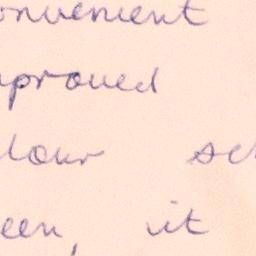 onvenient
proved
lour sc
een, it